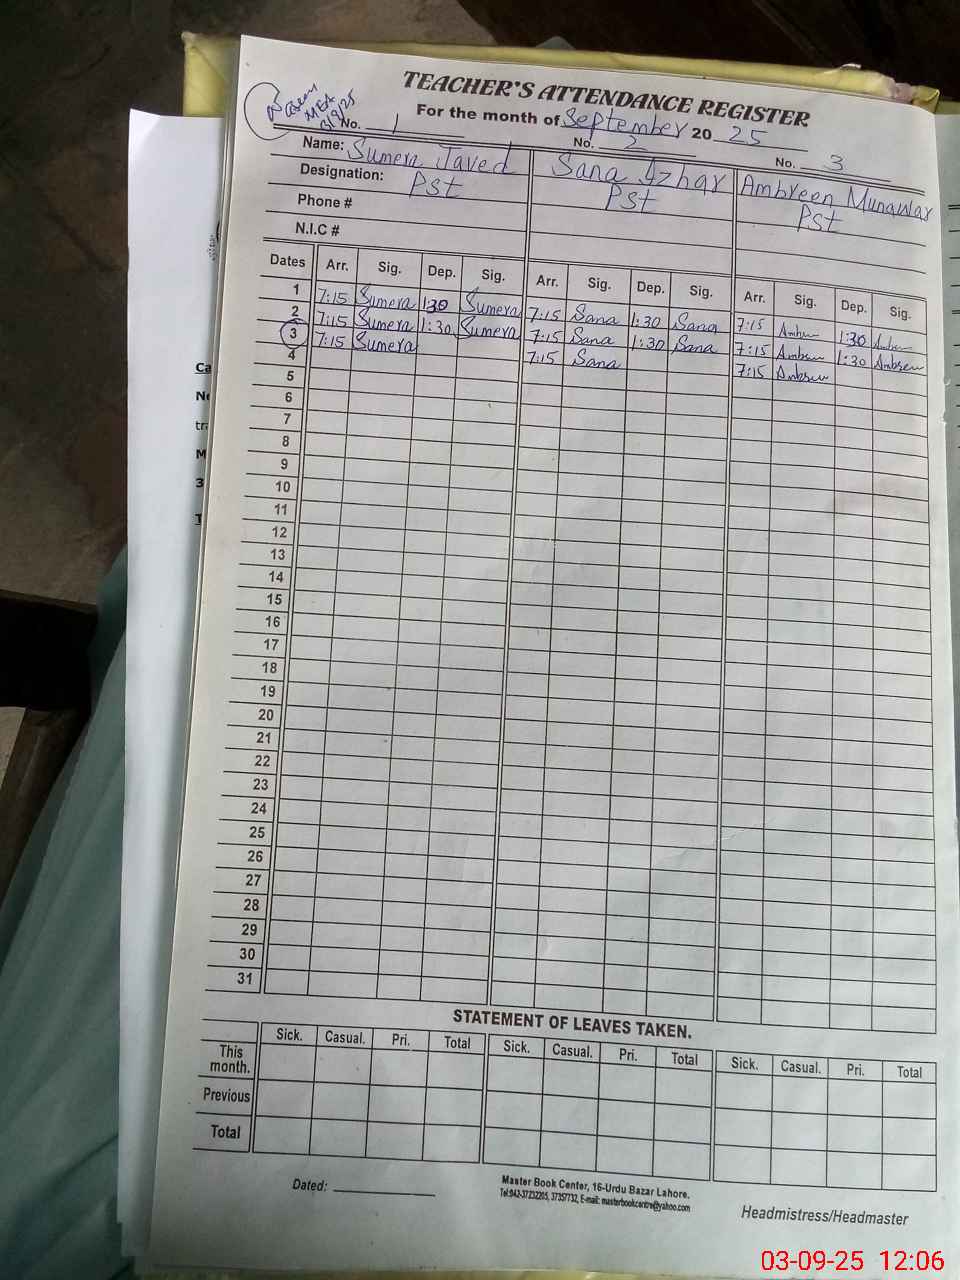 TEACHER'S ATTENDANCE REGISTER
For the month of September 2025
Naseem
MEA
3/9/25
No. 1 No. 2 No. 3
Name: Sumera Javed Sana Izhar Ambreen Munawar
Designation: Pst Pst Pst
Phone #
N.I.C #
Dates Arr. Sig. Dep. Sig. Arr. Sig. Dep. Sig. Arr. Sig. Dep. Sig.
1 7:15 Sumera 1:30 Sumera 7:15 Sana 1:30 Sana 7:15 Ambreen 1:30 Ambreen
2 7:15 Sumera 1:30 Sumera 7:15 Sana 1:30 Sana 7:15 Ambreen 1:30 Ambreen
3 7:15 Sumera 7:15 Sana 7:15 Ambreen
4
5
6
7
8
9
10
11
12
13
14
15
16
17
18
19
20
21
22
23
24
25
26
27
28
29
30
31
STATEMENT OF LEAVES TAKEN.
Sick. Casual. Pri. Total Sick. Casual. Pri. Total Sick. Casual. Pri. Total
This
month.
Previous
Total
Dated:
Master Book Center, 16-Urdu Bazar Lahore.
Tel:042-37232205, 37357732, E-mail: masterbookcentre@yahoo.com
Headmistress/Headmaster
03-09-25 12:06